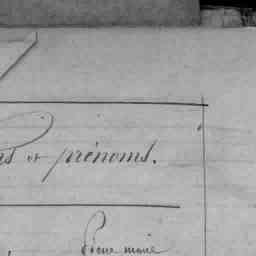 et prénoms.
Pierre marie